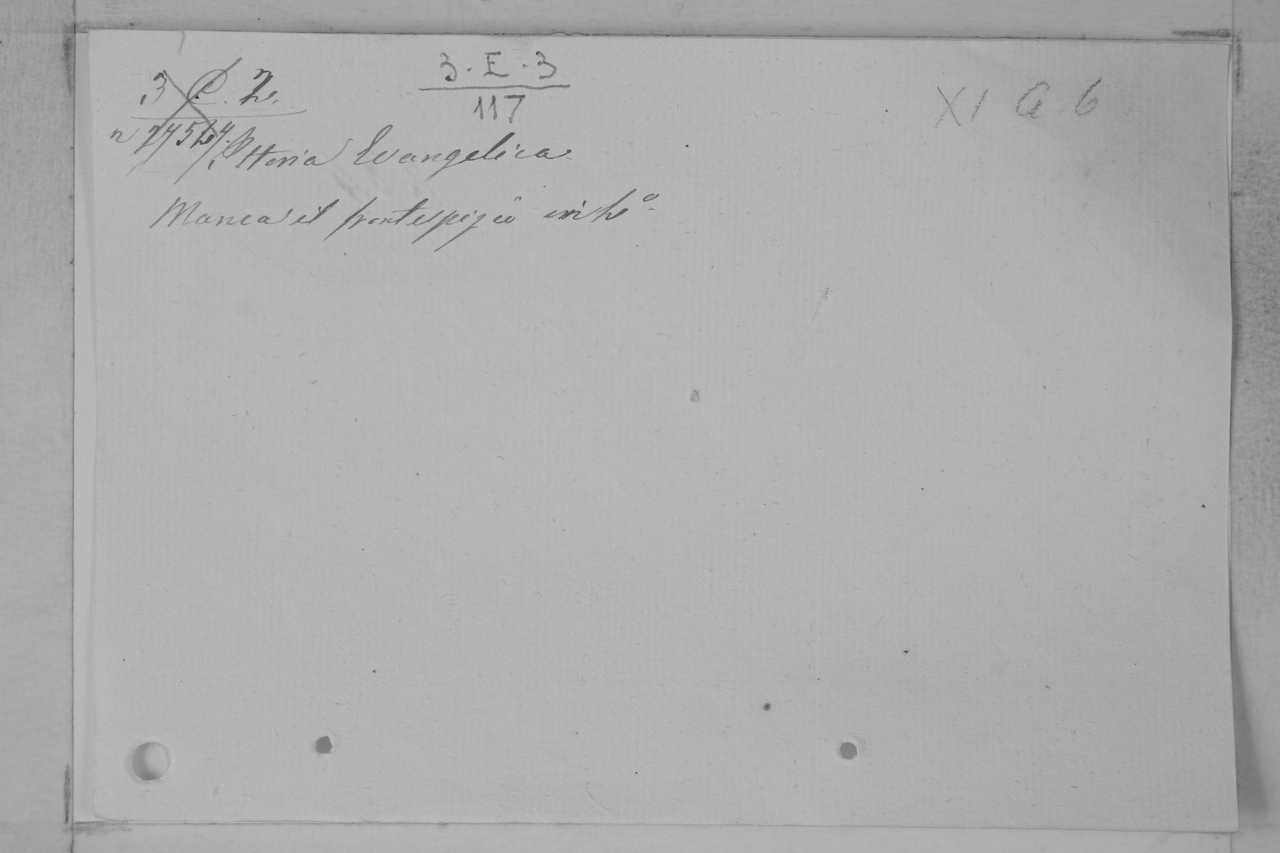 3 C. 2.
3 · E · 3
117
XI G 6
Storia Evangelica
Manca il frontespizio